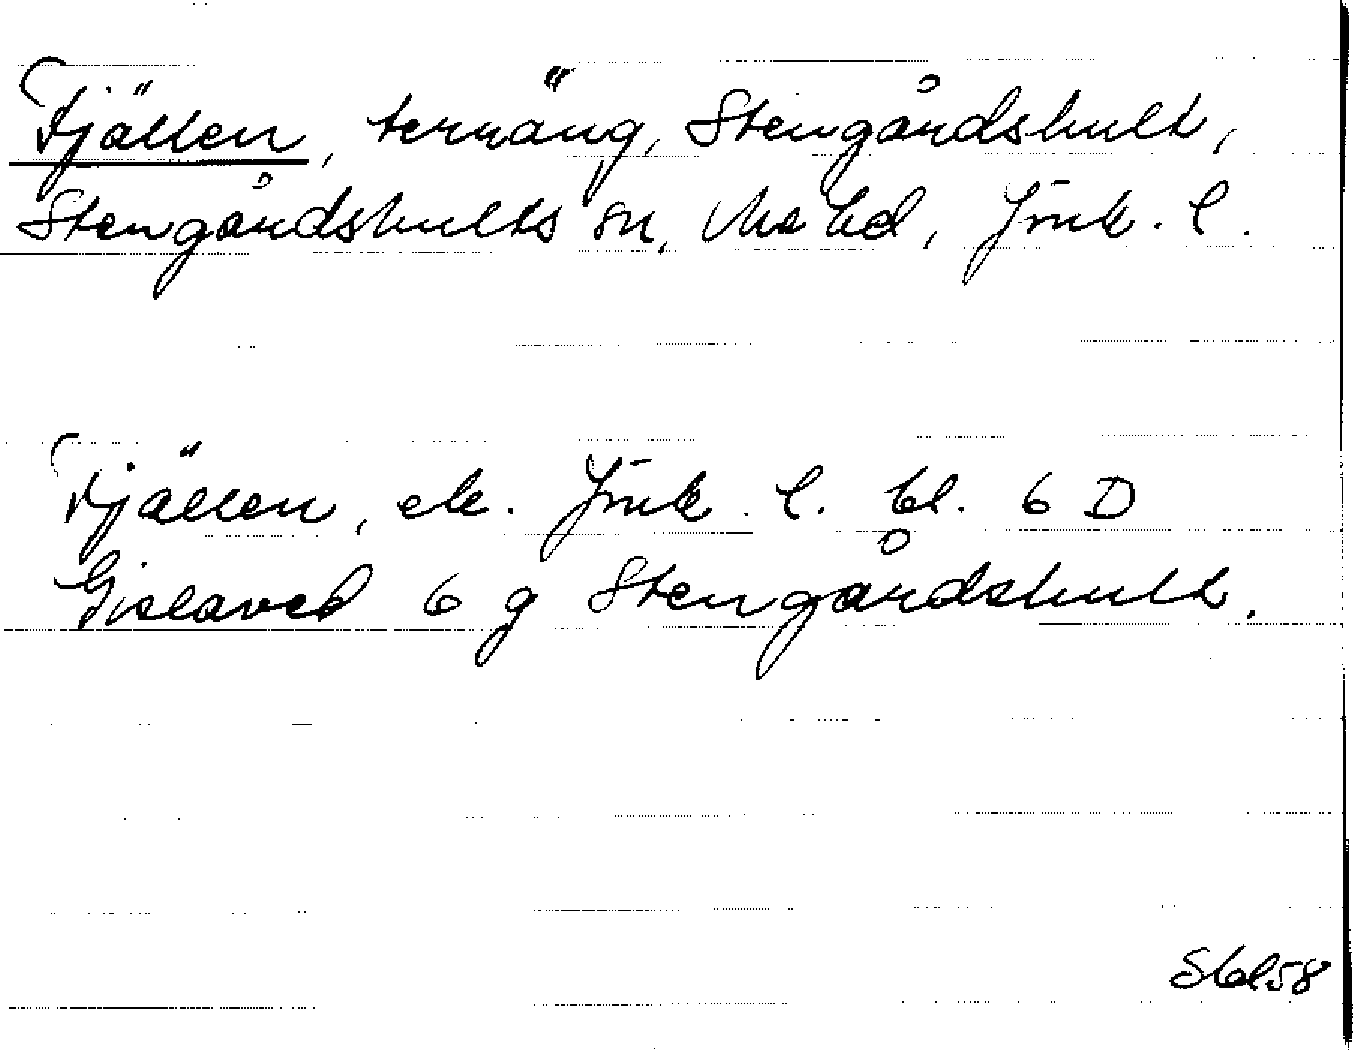 Fjällen, terräng, Stengårdshult,
Stengårdshults sn, Mo hd, Jönk. l.
Fjällen, ek. Jönk. l. bl. 6 D
Gislaved 6 g Stengårdshult.